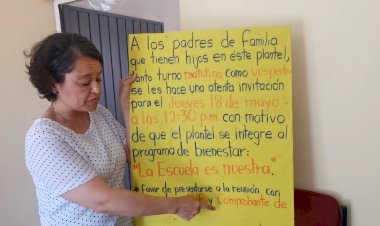 A los padres de familia
que tienen hijos en éste plantel,
tanto turno matutino como vespertino
se les hace una atenta invitación
para el Jueves 18 de mayo
a las 12:30 p.m. con motivo
de que el plantel se integre al
programa de bienestar:
"La Escuela es nuestra".
* Favor de presentarse a la reunión con
INE y Comprobante de